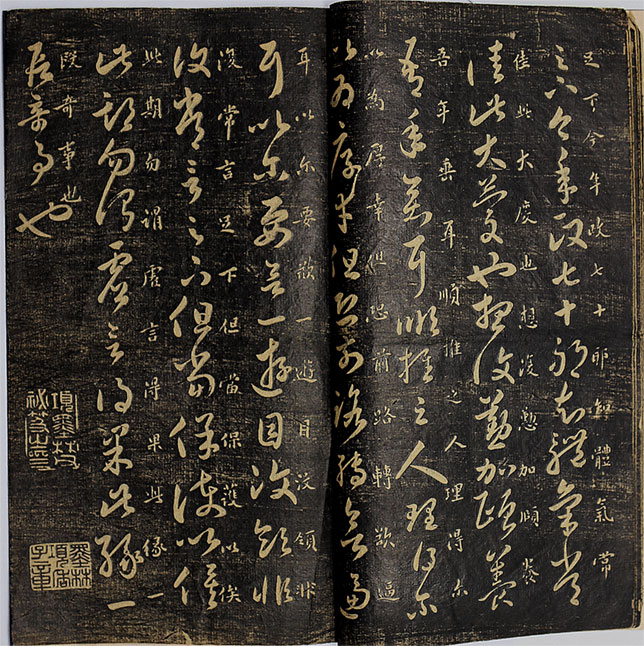 足下今年政七十耶知體氣常
足下今年政七十耶知體氣常
佳此大慶也想復懃加頤養
佳此大慶也想復懃加頤養
吾年垂耳順推之人理得尒
吾年垂耳順推之人理得尒
以為厚幸但恐前路轉欲逼
以為厚幸但恐前路轉欲逼
耳以尒要欲一遊目汶領非
耳以尒要欲一遊目汶領非
復常言足下但當保護以俟
復常言足下但當保護以俟
此期勿謂虛言得果此緣一
此期勿謂虛言得果此緣一
段奇事也
段奇事也
項墨林父
秘笈之印
墨林
項季
子章